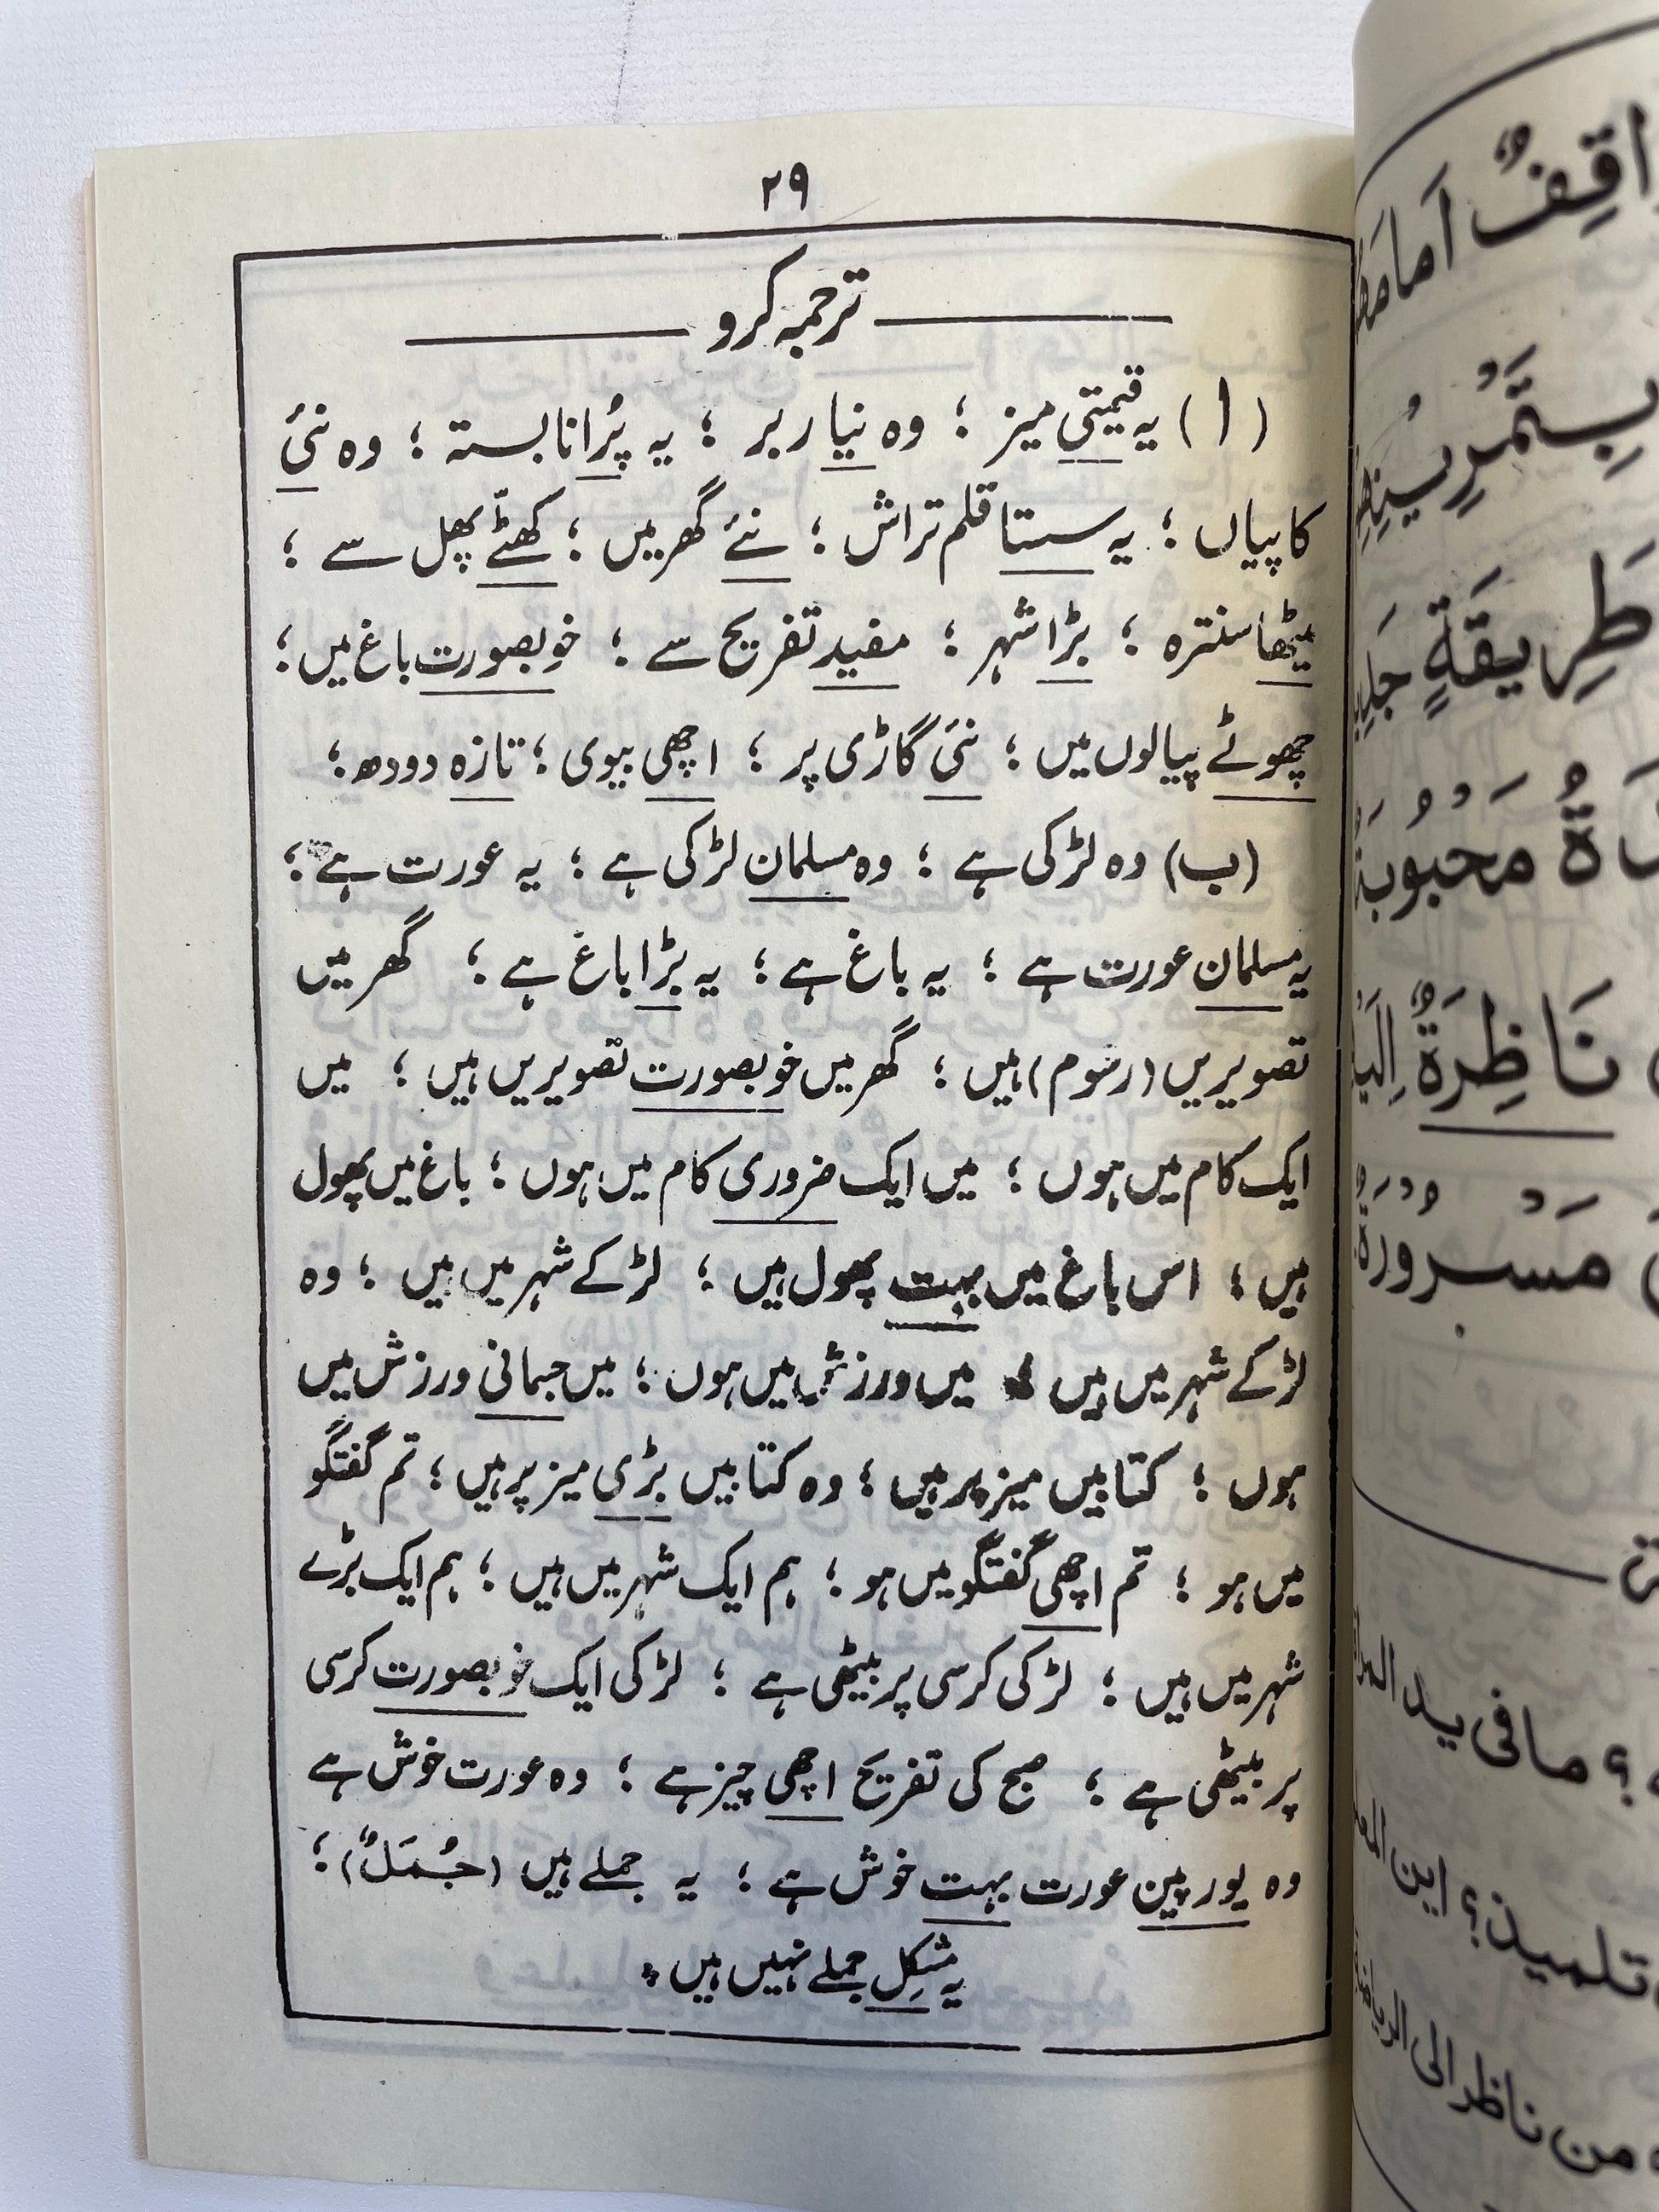 ۲۹
ترجمہ کرو
(ا) یہ قیمتی میز ؛ وہ نیا ربر ؛ یہ پُرانا بستہ ؛ وہ نئی
کاپیاں ؛ یہ سستا قلم تراش ؛ نئے گھر میں ؛ کھٹّے پھل سے ؛
میٹھا سنترہ ؛ بڑا شہر ؛ مفید تفریح سے ؛ خوبصورت باغ میں ؛
چھوٹے پیالوں میں ؛ نئی گاڑی پر ؛ اچھی بیوی ؛ تازہ دودھ ؛
(ب) وہ لڑکی ہے ؛ وہ مسلمان لڑکی ہے ؛ یہ عورت ہے ؛
یہ مسلمان عورت ہے ؛ یہ باغ ہے ؛ یہ بڑا باغ ہے ؛ گھر میں
تصویریں (رسوم) ہیں ؛ گھر میں خوبصورت تصویریں ہیں ؛ میں
ایک کام میں ہوں ؛ میں ایک ضروری کام میں ہوں ؛ باغ میں پھول
ہیں ؛ اس باغ میں بہت پھول ہیں ؛ لڑکے شہر میں ہیں ؛ وہ
لڑکے شہر میں ہیں ؛ میں ورزش میں ہوں ؛ میں جسمانی ورزش میں
ہوں ؛ کتابیں میز پر ہیں ؛ وہ کتابیں بڑی میز پر ہیں ؛ تم گفتگو
میں ہو ؛ تم اچھی گفتگو میں ہو ؛ ہم ایک شہر میں ہیں ؛ ہم ایک بڑے
شہر میں ہیں ؛ لڑکی کرسی پر بیٹھی ہے ؛ لڑکی ایک خوبصورت کرسی
پر بیٹھی ہے ؛ صبح کی تفریح اچھی چیز ہے ؛ وہ عورت خوش ہے
وہ یورپین عورت بہت خوش ہے ؛ یہ جملے ہیں (جُمَلٌ) ؛
یہ مشکل جملے نہیں ہیں ۔
بِسَتَّمُرِ
طَرِيقَةٍ
مَحْبُوبَةٌ
نَاظِرَةٌ
مَسْرُورَةٌ
؟ ما فی ید
تلمیذ؟ این
من ناظر الی